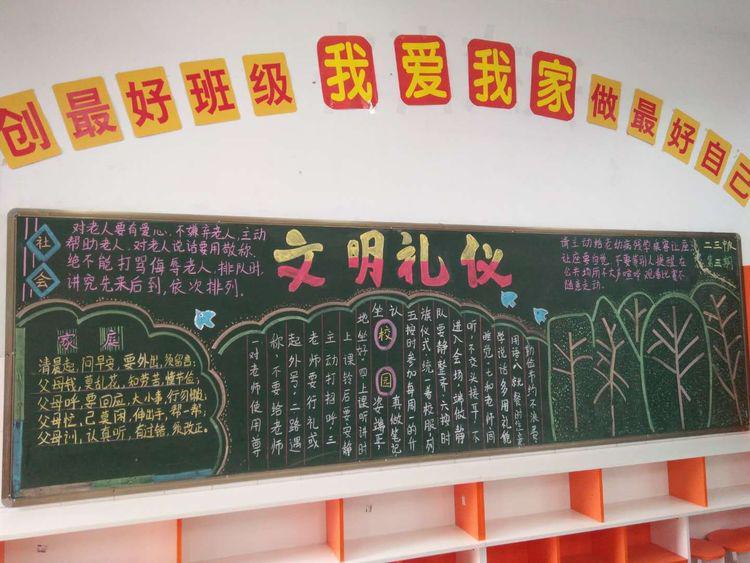 创最好班级 我爱我家 做最好自己
社会
对老人要有爱心.不嫌弃老人,主动
帮助老人.对老人说话要用敬称.
绝不能打骂侮辱老人.排队时,
讲究先来后到,依次排列.
文明礼仪
请主动给老幼病残孕乘客让座,
让座要自觉,不要等别人提醒.在
公共场所不大声喧哗.观看比赛不
随意走动.
二三中队
第三期
家庭
清晨起,问早安,要外出,须留言;
父母钱,莫乱花,知劳苦,
父母呼,要回应,大小事,行勿懒;
父母忙,己莫闲,伸出手,帮一帮;
父母训,认真听,有过错,须改正.
校园
一对老师使用尊
称,不要给老师
起外号.二路遇
老师要行礼或
主动打招呼.三
上课铃后要安静
地坐好.四上课听讲时
坐姿端正,
认真做笔记.
五按时参加每周的升
旗仪式,统一着校服,列
队要静整齐.六按时
进入会场,端做静
听,不交头接耳,不
睡觉.七和老师同
学说话多用礼貌
用语.八就餐时注意
勤俭节约不浪费.